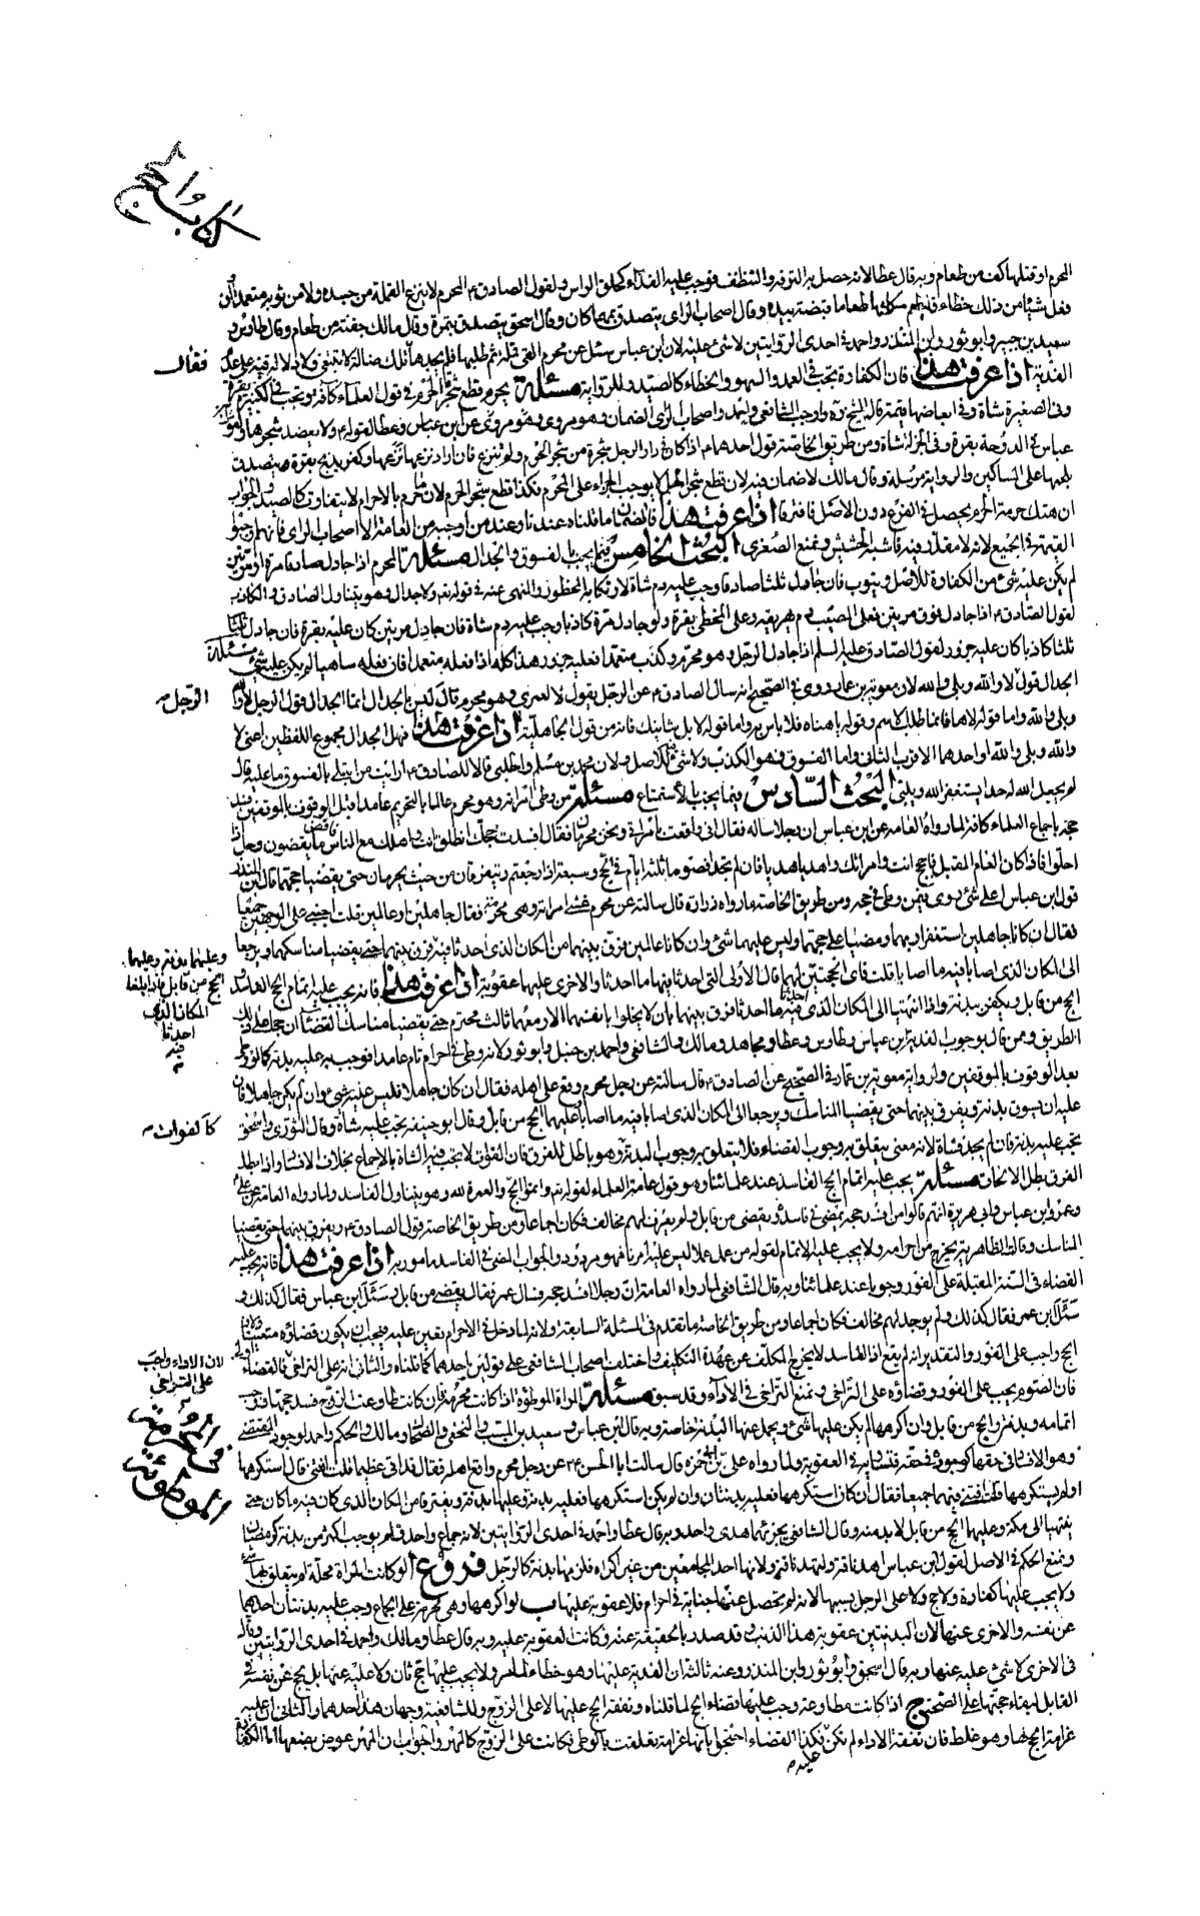 كتاب الحج
المحرم او قتلها كف من طعام وبه قال عطا لانه حصل به الترفه والتنظف فوجب عليه الفداء كحلق الراس ولقول الصادق ع المحرم لا ينزع القملة من جسده ولا من ثوبه متعمدا وان
فعل شيئا من ذلك خطاء فليطعم مكانها طعاما قبضة بيده وقال اصحاب الراى يتصدق بمهما كان وقال اسحق يتصدق بتمرة وقال مالك جفنة من طعام وقال طاوس و
سعيد بن جبير وابو ثور وابن المنذر واحمد فى احدى الروايتين لا شئ عليه لان ابن عباس سئل عن محرم القى قملة ثم طلبها فلم يجدها فقال تلك ضالة لا تبتغى ولا دلالة فيه على عدم
الفدية اذا عرفت هذا فان الكفارة يجب فى العمد والسهو والخطاء كالصيد وللرواية مسئلة يحرم قطع شجر الحرم فى قول العلماء كافة ويجب فى الكبيرة بقرة
وفى الصغيرة شاة وفى ابعاضها قيمته قاله الشيخ ره واوجب الشافعى واحمد واصحاب الراى الضمان وهو مروى عن ابن عباس وعطا لقوله ع ولا يعضد شجرها
عباس فى الدوحة بقرة وفى الجزلة شاة ومن طريق الخاصة قول احدهما ع اذا كان فى دار الرجل شجرة من شجر الحرم ولم تنزع فان اراد نزعها نزعها وكفر بذبح بقرة يتصدق
بلحمها على المساكين والرواية مرسلة وقال مالك لا ضمان فيه لان قطع شجر الحل لا يوجب الجزاء على المحرم فكذا قطع شجر الحرم لان ما حرم بالاحرام لا يتفاوت كالصيد والجواب
ان هتك حرمة الحرم يحصل فى الفرع دون الاصل فافترقا اذا عرفت هذا فالضمان ما قلناه عندنا وعند من اوجبه من العامة الا اصحاب الراى فانهم اوجبوا
القيمة فى الجميع لانه لا مقدر فيه فاشبه الحشيش ونمنع الصغرى البحث الخامس فيما يجب بالفسوق والجدال مسئلة المحرم اذا جادل صادقا مرة او مرتين
لم يكن عليه شئ من الكفارة للاصل ويتوب فان جادل ثلثا صادقا وجب عليه دم شاة لارتكابه المحظور والنهى عنه فى قوله تع ولا جدال وهو يتناول الصادق والكاذب
لقول الصادق ع اذا جادل فوق مرتين فعلى المصيب دم يهريقه وعلى المخطى بقرة ولو جادل مرة كاذبا وجب عليه دم شاة فان جادل مرتين كان عليه بقرة فان جادل ثلثا
ثلثا كاذبا كان عليه جزور لقول الصادق عليه السلم اذا جادل الرجل وهو محرم وكذب متعمدا فعليه جزور هذا كله اذا فعله متعمدا فان فعله ساهيا لم يكن عليه شئ مسئلة
الجدال قول لا والله وبلى والله لان معوية بن عمار روى فى الصحيح انه سال الصادق ع عن الرجل يقول لا لعمرى وهو محرم قال ليس بالجدال انما الجدال قول الرجل لا والله
الرجل
وبلى والله واما قوله لاها فانما طلب الاسم وقوله يا هناه فلا باس به واما قوله لا بل شانيك فانه من قول الجاهلية اذا عرفت هذا فهل الجدال مجموع اللفظين اعنى لا
والله وبلى والله او احدهما الاقرب الثانى واما الفسوق فهو الكذب ولا شئ فيه للاصل ولان محمد بن مسلم والحلبى قالا للصادق ع ارايت من ابتلى بالفسوق ما عليه قال
لم يجعل الله له حدا يستغفر الله ويلبى البحث السادس فيما يجب بالاستمتاع مسئلة من وطى امراته وهو محرم عالما بالتحريم عامدا قبل الوقوف بالموقفين فسد
حجه باجماع العلماء كافة لما رواه العامة عن ابن عباس ان رجلا ساله فقال انى واقعت بامراتى ونحن محرمان فقال افسدت حجك انطلق انت واهلك مع الناس فاقض ما يقضون وحل اذا
احلوا فاذا كان العام المقبل فاحجج انت وامراتك واهديا هديا فان لم تجدا فصوما ثلثة ايام فى الحج وسبعة اذا رجعتم ويتفرقان من حيث يحرمان حتى يقضيا حجهما قال ابن المنذر
قول ابن عباس اعلى شئ روى فيمن وطى فى حجه ومن طريق الخاصة ما رواه زرارة قال سالته عن محرم غشى امراته وهى محرمة فقال جاهلين او عالمين قلت اجبنى على الوجهين جميعا
فقال ان كانا جاهلين استغفرا ربهما ومضيا على حجهما وليس عليهما شئ وان كانا عالمين فرق بينهما من المكان الذى احدثا فيه فرق بينهما حتى يقضيا مناسكهما ويرجعا
وعليهما بدنة وعليهما
الحج من قابل فاذا بلغا
المكان الذى
احدثا
فيه
الى المكان الذى اصابا فيه ما اصابا قلت فاى الحجتين لهما قال الاولى التى احدثا فيها ما احدثا والاخرى عليهما عقوبة اذا عرفت هذا فانه يجب عليه اتمام الحج الفاسد و
الحج من قابل ويكفر ببدنة واذا انتهيا الى المكان الذى احدثا فيه ما احدثا فرق بينهما بان لا يخلوا بانفسهما الا ومعهما ثالث محترم حتى يقضيا مناسك القضاء ان حجا على ذلك
الطريق وممن قال بوجوب الفدية ابن عباس وطاوس وعطا ومجاهد ومالك والشافعى واحمد بن حنبل وابو ثور ولانه وطى فى احرام تام عامدا فوجب به عليه بدنة كالوطى
بعد الوقوف بالموقفين ولرواية معوية بن عمار فى الصحيح عن الصادق ع قال سالته عن رجل محرم وقع على اهله فقال ان كان جاهلا فليس عليه شئ وان لم يكن جاهلا فان
عليه ان يسوق بدنة ويفرق بينهما حتى يقضيا المناسك ويرجعا الى المكان الذى اصابا فيه ما اصابا وعليهما الحج من قابل وقال ابو حنيفة يجب عليه شاة وقال الثورى واسحق
كالفوات
يجب عليه بدنة فان لم يجد فشاة لانه معنى يتعلق به وجوب القضاء فلا يتعلق به وجوب البدنة وهو باطل للفرق فان الفوات لا يجب فيه الشاة بالاجماع بخلاف الافساد واذا بطل
الفرق بطل الالحاق مسئلة يجب عليه اتمام الحج الفاسد عند علمائنا وهو قول عامة العلماء لقوله تع واتموا الحج والعمرة لله وهو يتناول الفاسد ولما رواه العامة عن على
وعمر وابن عباس وابى هريرة انهم قالوا من افسد حجه يمضى فى فاسده ويقضى من قابل ولم يعرف لهم مخالف فكان اجماعا ومن طريق الخاصة قول الصادق ع ويفرق بينهما حتى يقضيا
المناسك وقالت الظاهرية يخرج من احرامه ولا يجب عليه الاتمام لقوله من عمل عملا ليس عليه امرنا فهو مردود والجواب المضى فى الفاسد مامور به اذا عرفت هذا فانه يجب عليه
القضاء فى السنة المقبلة على الفور وجوبا عند علمائنا وبه قال الشافعى لما رواه العامة ان رجلا افسد حجه فسال عمر فقال يقضى من قابل وسئل ابن عباس فقال كذلك و
سئل ابن عمر فقال كذلك ولم يوجد لهم مخالف فكان اجماعا ومن طريق الخاصة ما تقدم فى المسئلة السابقة ولانه لما دخل فى الاحرام تعين عليه فيجب ان يكون قضاؤه متعينا ولان
الحج واجب على الفور والتقدير انه لم يقع اذ الفاسد لا يخرج المكلف عن عهدة التكليف واختلف اصحاب الشافعى على قولين احدهما كما قلناه والثانى انه على التراخى فالقضاء اولى
لان الاداء واجب
على التراخى
فان الصوم يجب على الفور وقضاؤه على التراخى ونمنع التراخى فى الاداء وقد سبق مسئلة المراة الموطوءة اذا كانت محرمة فان كانت طاوعت الزوج فسد حجها ووجب
فى المحرمة
الموطوئة
اتمامه وبدنة والحج من قابل وان اكرهها لم يكن عليها شئ ويحمل عنها البدنة خاصة وبه قال ابن عباس وسعيد بن المسيب والنخعى والضحاك ومالك والحكم واحمد لوجود المقتضى
وهو الافساد فى حقها كوجوده فى حقه فتساويه فى العقوبة ولما رواه على بن ابى حمزة قال سالت ابا الحسن ع عن رجل محرم واقع اهله فقال قد اتى عظيما قلت افتنى قال استكرهها
او لم يستكرهها قلت افتنى فيهما جميعا فقال ان كان استكرهها فعليه بدنتان وان لم يكن استكرهها فعليه بدنة وعليها بدنة ويفترقان من المكان الذى كان فيه ما كان حتى
ينتهيا الى مكة وعليهما الحج من قابل لا بد منه وقال الشافعى يجزئهما هدى واحد وبه قال عطا واحمد فى احدى الروايتين لانه جماع واحد فلم يوجب اكثر من بدنة كرمضان
ونمنع الحكم فى الاصل لقول ابن عباس اهد ناقة ولتهد ناقة ولانها احد المجامعين من غير اكراه فلزمها بدنة كالرجل فروع ا لو كانت المراة محلة لم يتعلق بها شئ
ولا يجب عليها كفارة ولا حج ولا على الرجل بسببها لانه لم تحصل عنها جناية فى احرام فلا عقوبة عليها ب لو اكرهها وهى محرمة على الجماع وجب عليه بدنتان احدهما
عن نفسه والاخرى عنها لان البدنتين عقوبة هذا الذنب وقد صدر بالحقيقة عنه فكانت العقوبة عليه وبه قال عطا ومالك واحمد فى احدى الروايتين وقال
فى الاخرى لا شئ عليه عنها وبه قال اسحق وابو ثور وابن المنذر وعنه ثالثة ان الفدية عليها وهو خطاء لما مر ولا يجب عليها حج ثان ولا عليه عنها بل يحج عن نفسه فى
القابل لبقاء حجتها على الصحة ج اذا كانت مطاوعة وجب عليها قضاء الحج لما قلناه ونفقة الحج عليها لا على الزوج وللشافعية وجهان هذا احدهما والثانى ان عليه
غرامة الحج لها وهو غلط فان نفقة الاداء لم تكن عليه فكذا القضاء احتجوا بانها غرامة تعلقت بالوطى فكانت على الزوج كالمهر والجواب ان المهر عوض بضعها اما الكفارة